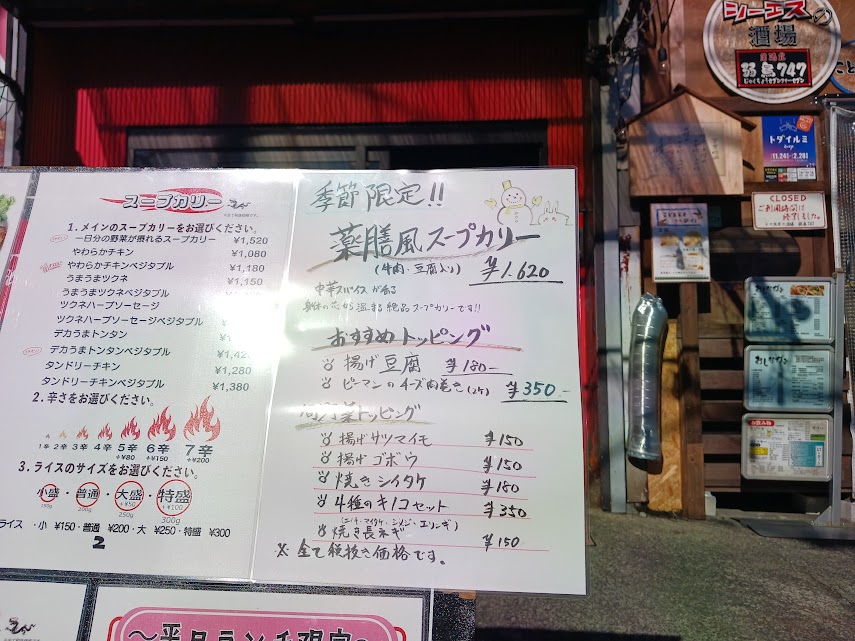 スープカリー
1.メインのスープカリーをお選びください。
一日分の野菜が摂れるスープカリー ¥1,520
やわらかチキン ¥1,080
やわらかチキンベジタブル ¥1,180
うまうまツクネ ¥1,150
うまうまツクネベジタブル
ツクネハーブソーセージ
ツクネハーブソーセージベジタブル
デカうまトンタン
デカうまトンタンベジタブル
タンドリーチキン ¥1,280
タンドリーチキンベジタブル ¥1,380
2.辛さをお選びください。
1辛 2辛 3辛 4辛 5辛 6辛 7辛
+¥80 +¥150 +¥200
3.ライスのサイズをお選びください。
小盛・普通・大盛・特盛
+¥50 +¥100
150g 200g 250g 300g
ライス ・小 ¥150・普通 ¥200・大 ¥250・特盛 ¥300
2
季節限定!!
薬膳風スープカリー
(牛肉・豆腐入り) ¥1.620
中華スパイスが香る
おすすめトッピング
揚げ豆腐 ¥180-
ピーマンのチーズ肉巻き(2ケ) ¥350-
トッピング
揚げサツマイモ ¥150
揚げゴボウ ¥150
焼きシイタケ ¥180
4種のキノコセット ¥350
(エノキ・マイタケ・シメジ・エリンギ)
焼き長ネギ ¥150
※全て税抜き価格です。
〜平日ランチ限定〜
シーエスの
酒場
弱鳥747
じゃくちょうセブンフォーセブン
トダイルミ
11.24 2.28
CLOSED
ご利用時間は
終了しました。
おしながき
おしながき
お飲み物